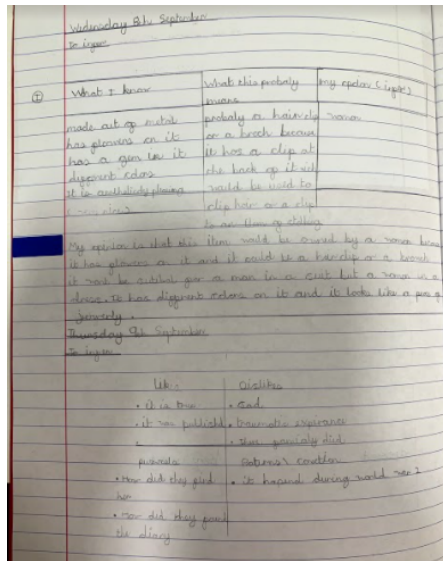 Wednesday 8th September
To infer
What I know
What this probaly means
My opinion (infer)
made out of metal
has flowers on it
has a gem in it
different colors
It is
probaly a hairclip
or a broch because
it has a clip at
the back of it
would be used to
clip hair or a clip
to an item of clothing
woman
My opinion is that this item would be owned by a woman
it has flowers on it and it could be a hairclip or a broach
it wont be for a man in a suit but a woman in a
dress. It has different colors on it and it looks like a
Thursday 9th September
To infer
Like
Dislikes
• it is true
• Sad
• it was publishd
• traumatic expirance
did
• How did they find
her
• it hapend during world war 2
• How did they found
the diary